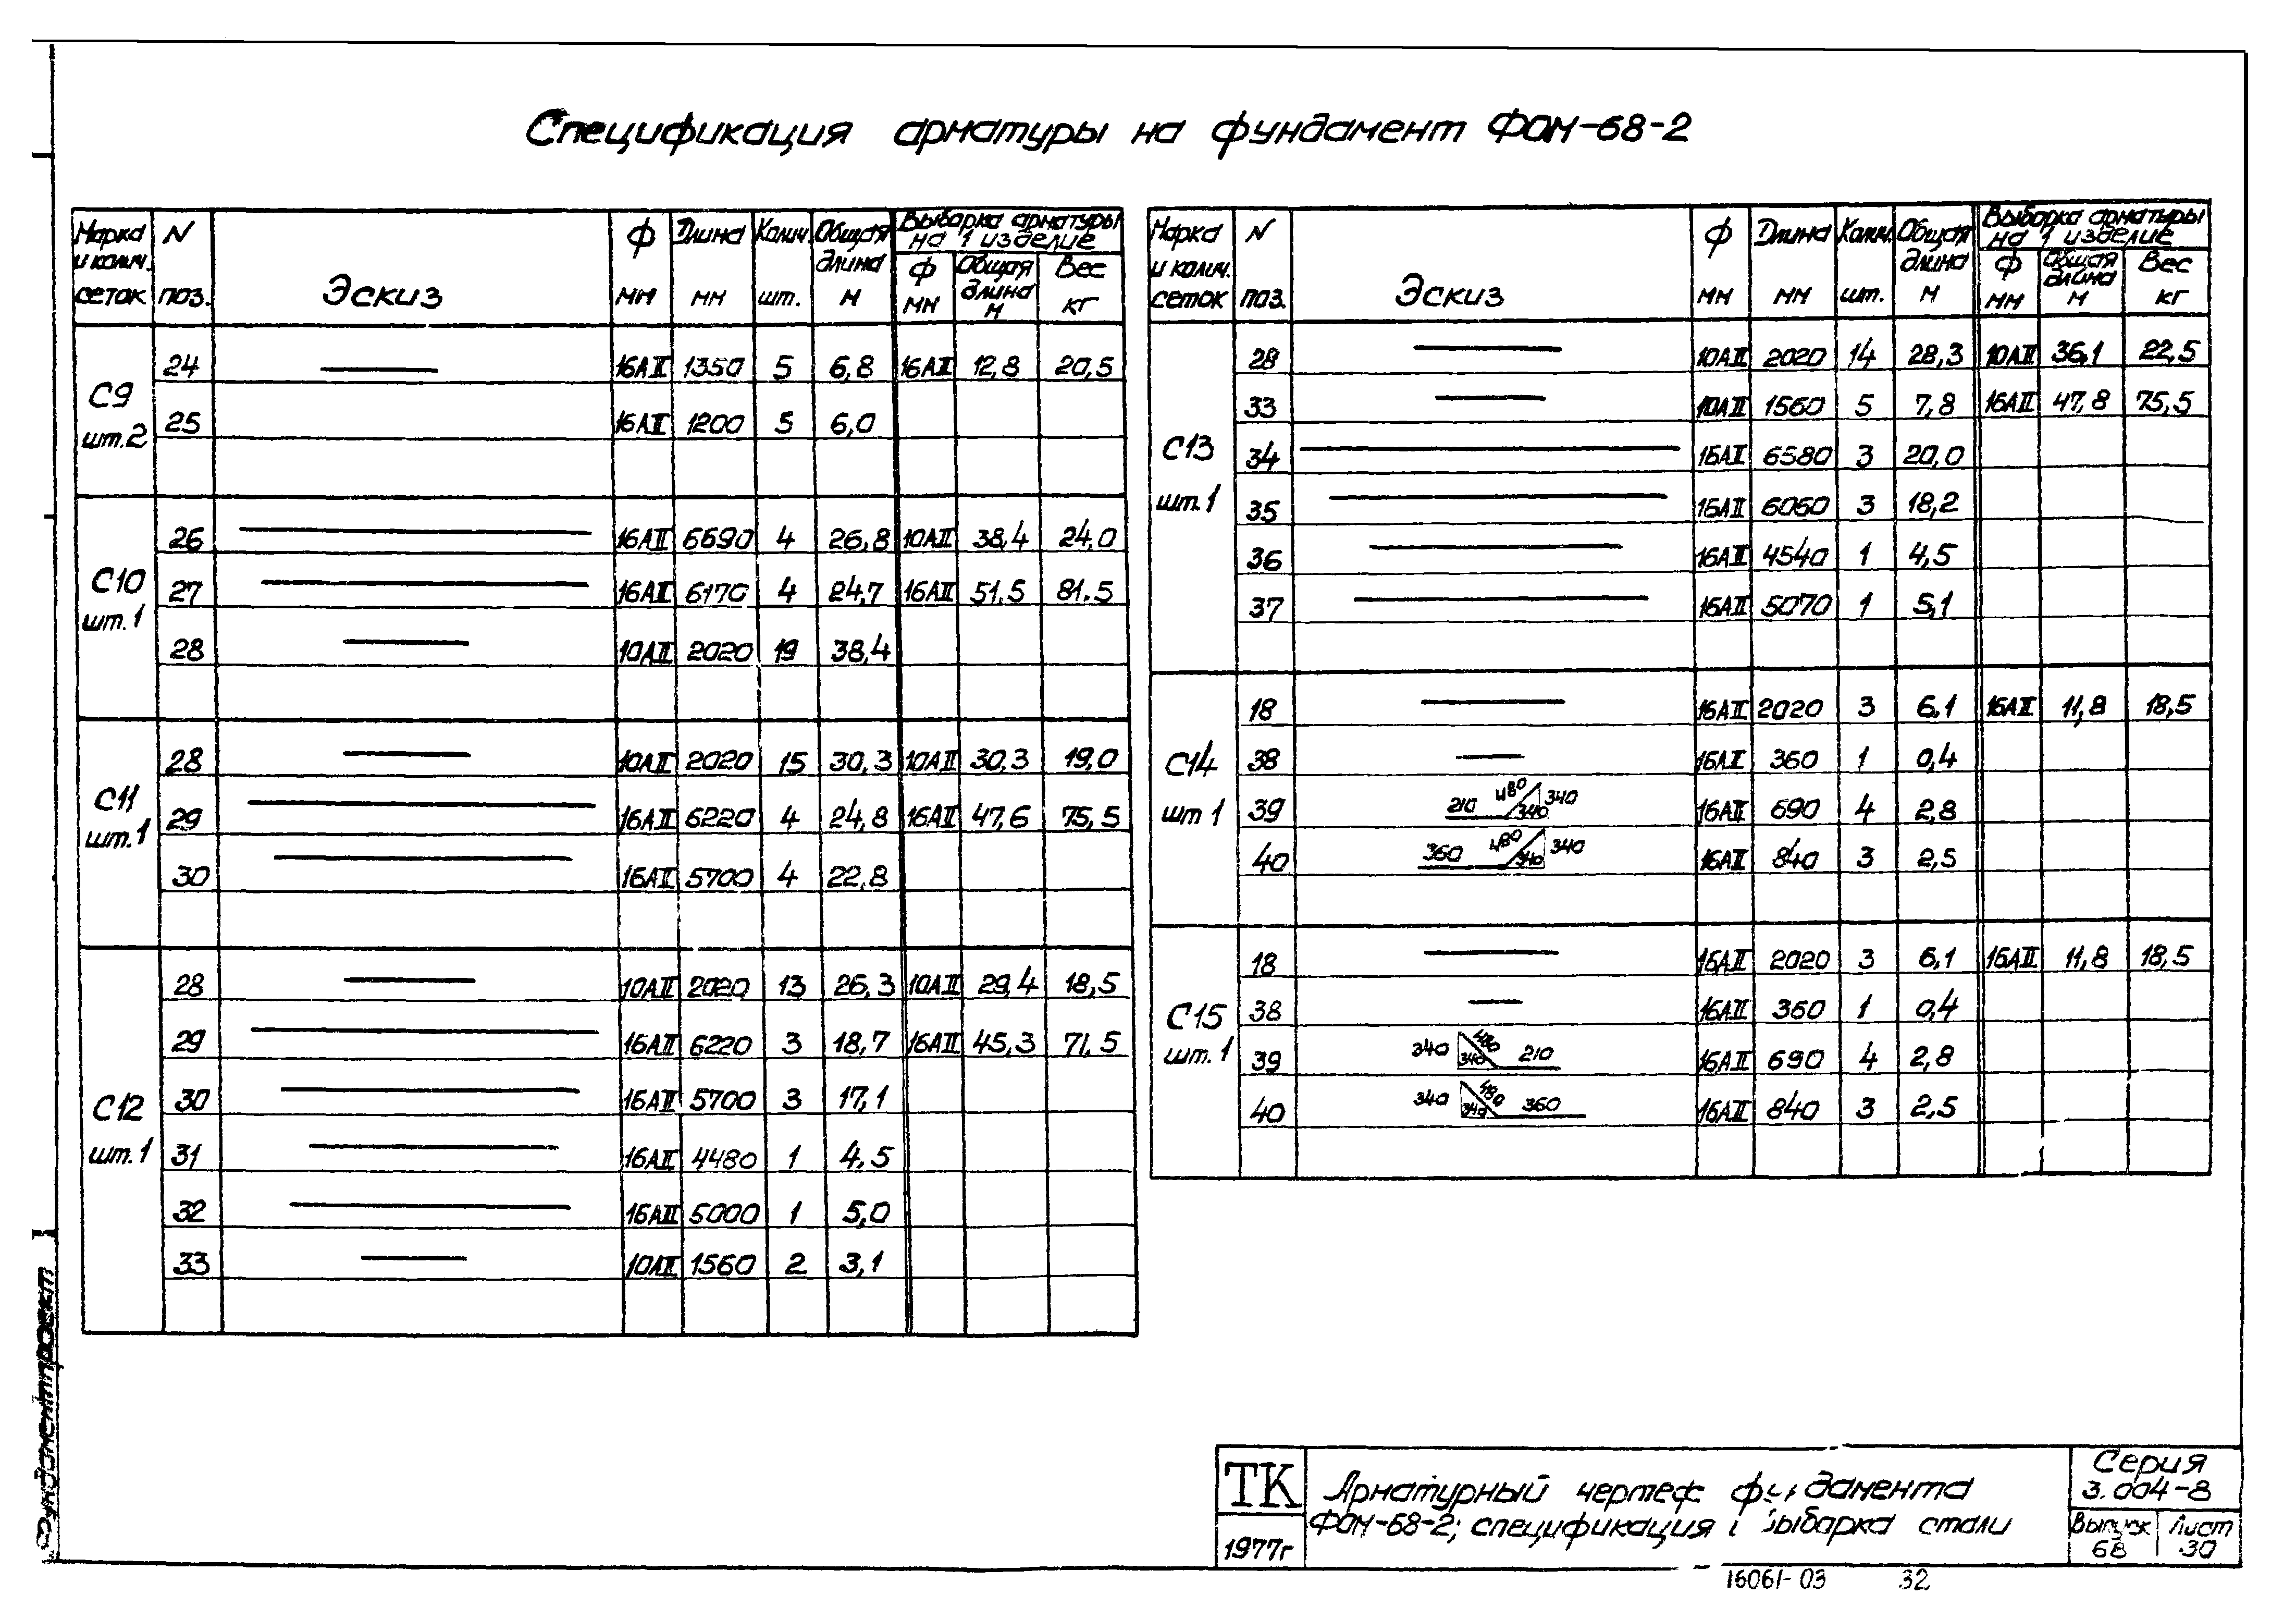 Спецификация арматуры на фундамент ФОМ-68-2
Марка и колич. сеток | N поз. | Эскиз | Ф мм | Длина мм | Колич. шт. | Общая длина м | Выборка арматуры на 1 изделие
Ф мм | Общая длина м | Вес кг
С9 шт.2
24 16АII 1350 5 6,8 16АII 12,8 20,5
25 16АII 1200 5 6,0
С10 шт.1
26 16АII 6690 4 26,8 10АII 38,4 24,0
27 16АII 6170 4 24,7 16АII 51,5 81.5
28 10АII 2020 19 38,4
С11 шт.1
28 10АII 2020 15 30,3 10АII 30,3 19,0
29 16АII 6220 4 24,8 16АII 47,6 75,5
30 16АII 5700 4 22,8
С12 шт.1
28 10АII 2020 13 26,3 10АII 29,4 18,5
29 16АII 6220 3 18,7 16АII 45,3 71,5
30 16АII 5700 3 17,1
31 16АII 4480 1 4,5
32 16АII 5000 1 5,0
33 10АII 1560 2 3,1
Марка и колич. сеток | N поз. | Эскиз | Ф мм | Длина мм | Колич. шт. | Общая длина м | Выборка арматуры на 1 изделие
Ф мм | Общая длина м | Вес кг
С13 шт.1
28 10АII 2020 14 28,3 10АII 36,1 22,5
33 10АII 1560 5 7,8 16АII 47,8 75,5
34 16АII 6680 3 20,0
35 16АII 6060 3 18,2
36 16АII 4540 1 4,5
37 16АII 5070 1 5,1
С14 шт 1
18 16АII 2020 3 6,1 16АII 11,8 18,5
38 16АII 360 1 0,4
39 210 480 340 340 16АII 690 4 2,8
40 360 480 340 340 16АII 840 3 2,5
С15 шт.1
18 16АII 2020 3 6,1 16АII 11,8 18,5
38 16АII 360 1 0,4
39 340 340 480 210 16АII 690 4 2,8
40 340 340 480 360 16АII 840 3 2,5
Фундаментпроект
ТК
1977г
Арматурный чертеж фундамента
ФОМ-68-2; спецификация и выборка стали
Серия
3.004-8
Выпуск 68
Лист 30
16061-03 32